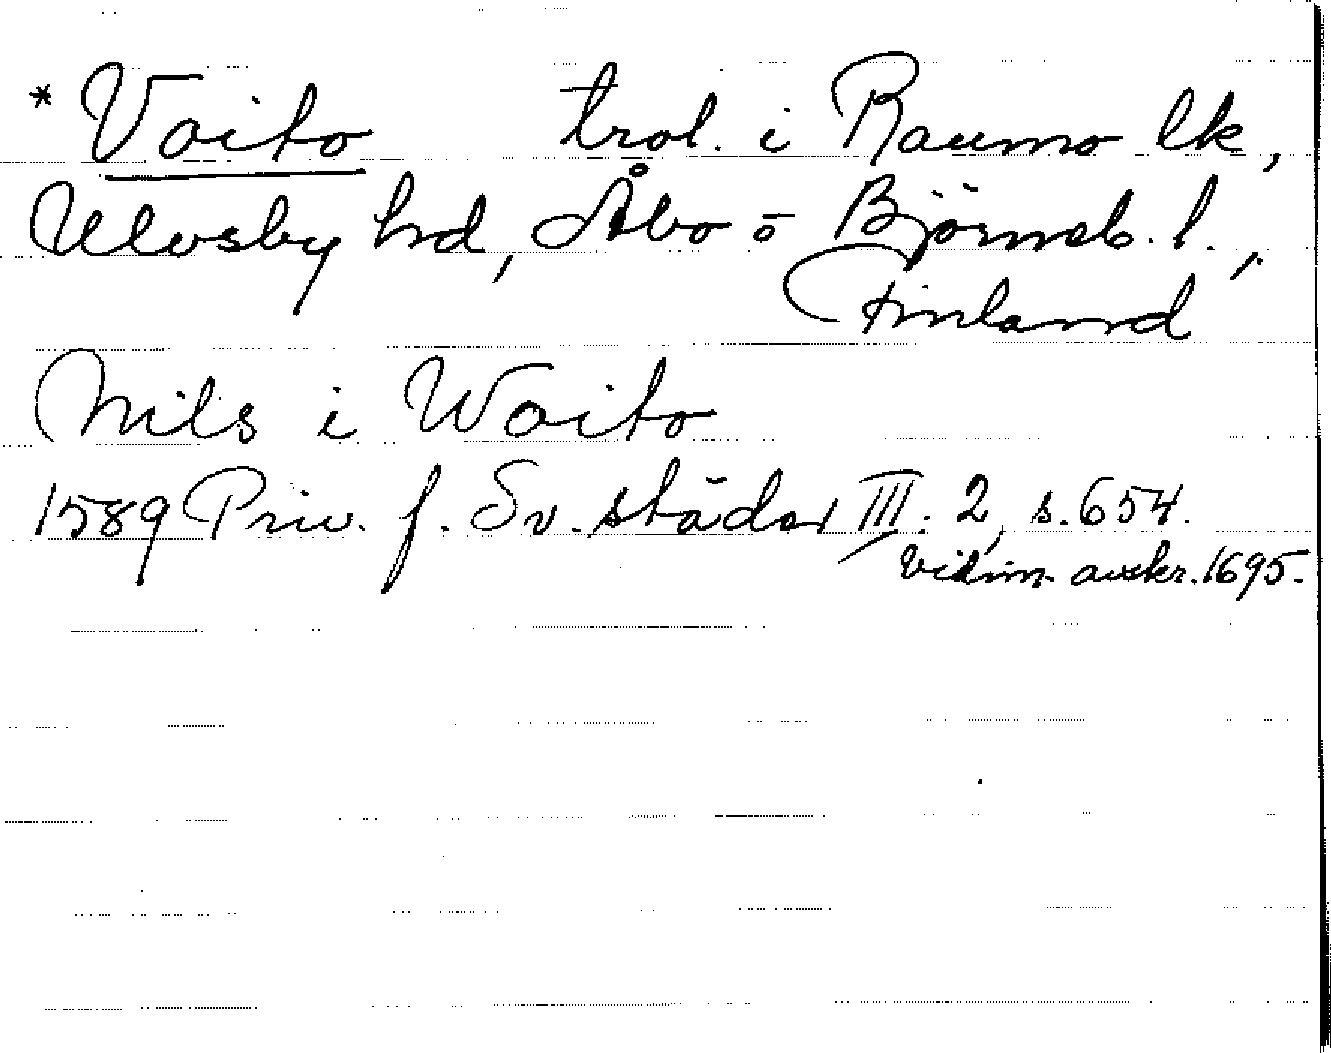 * Voito trol. i Raumo lk,
Ulvsby hd, Åbo o Björneb. l.,
Finland
Nils i Woito
1589 Priv. f. Sv. städer III: 2, s. 654.
Vidim. avskr. 1695.